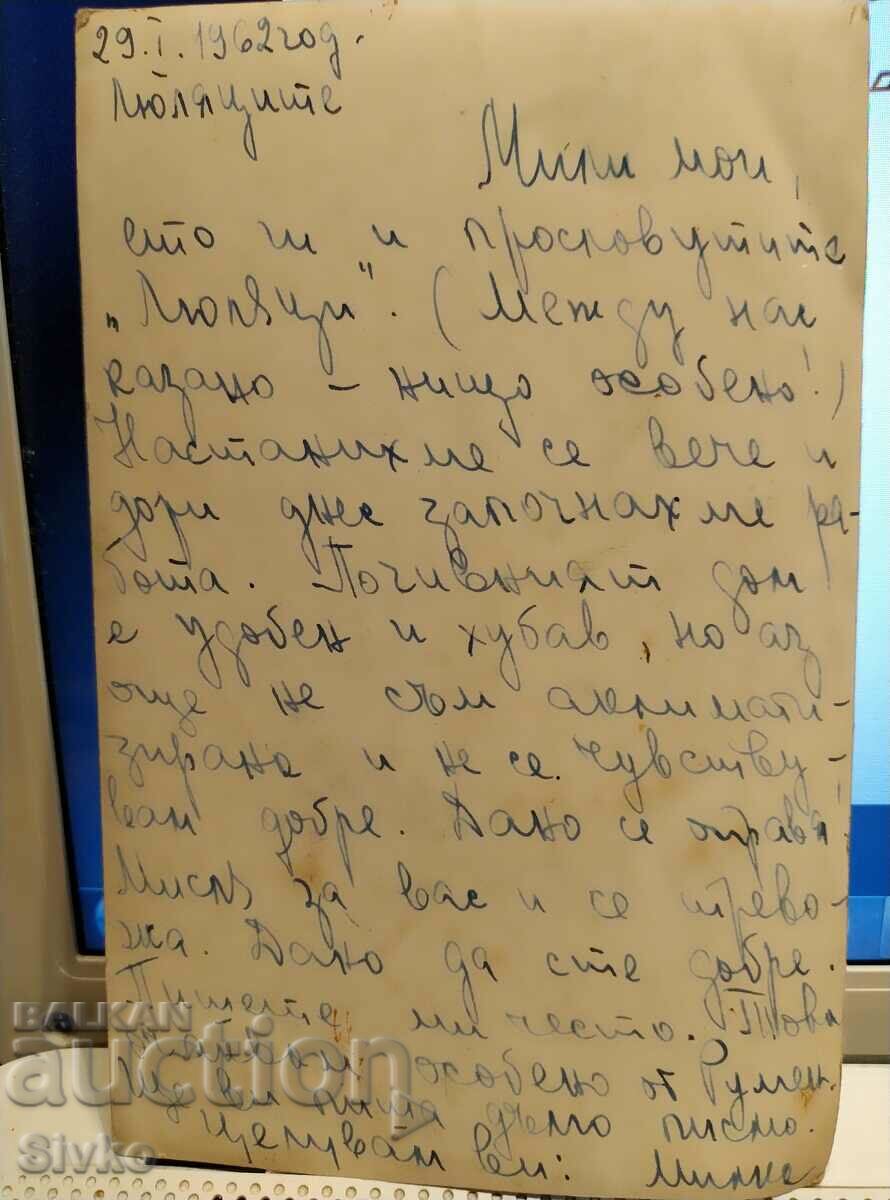 29.I.1962 год.
Люляците
Мили мои,
ето ги и прословутите
„Люляци". (Между нас
казано – нищо особено!)
Настанихме се вече и
дори днес започнахме ра-
бота. Почивният дом
е удобен и хубав, но аз
още не съм аклимати-
зирана и не се чувству-
вам добре. Дано се оправя!
Мисля за вас и се трево-
жа. Дано да сте добре.
Пишете ми често. Това
особено от Румен.
Ще ви пиша дълго писмо.
Целувам ви: Милка
BALKAN
auction
Sivko